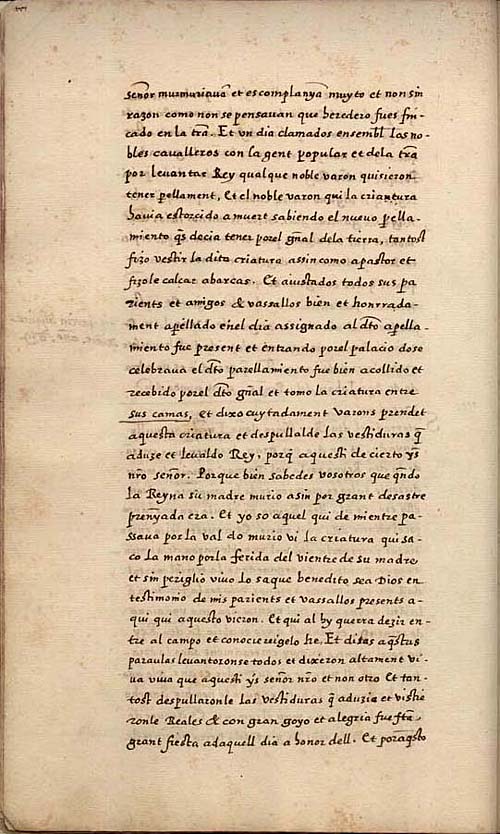 senor murmurauã et es complanyã muyto et non sin
razon como non se pensauan que heredero fues fin-
cado en la tr̃a. Et vn dia clamados ensembl las no-
bles cavalleros con la gent popular et dela tr̃a
por levantar Rey qualque noble varon quisieron
tener pellament, Et el noble varon qui la criantura
havia estorcido a muert sabiendo el nuevo pella-
miento q̃s decia tener porel gñal dela tierra, tantost
fizo vestir la dita criatura assin como a pastor et
fizole calcar abarcas. Et aiustados todos sus pa
rients et amigos & vassallos bien et honrrada-
ment apellado enel dia assignado al dt̃o apella-
miento fue present et entrando porel palacio do se
celebraua el dt̃o parellamiento fue bien acollido et
recebido porel dt̃o gñal et tomo la criatura entre
sus camas, et dixo cuytadament varons prendet
aquesta criatura et despullalde las vestiduras q̃
aduze et levaldo Rey, porq̃ aquesti de cierto ỹs
nr̃o señor. Porque bien sabedes vosotros que qñdo
la Reyna su madre murio asin por grant desastre
prenyada era. Et yo so aquel qui de mientre pa-
ssaua por la val do murio vi la criatura qui sa-
co la mano por la ferida del vientre de su madre
et sin periglio vivo lo saque benedito sea Dios en
testimonio de mis parients et vassallos presents a-
qui qui aquesto vieron. Et qui al hy querra dezir en-
tre al campo et conocie reigelo he. Et ditas aq̃stas
paraulas levantoronse todos et dixeron altament vi-
ua viua que aquesti ỹs señor nr̃o et non otro Et tan-
tost despullaronle las vestiduras q̃ aduzia et vistie
ronle Reales & con gran goyo et alegria fue ft̃a
grant fiesta adaquell dia a honor dell. Et por aq̃sto